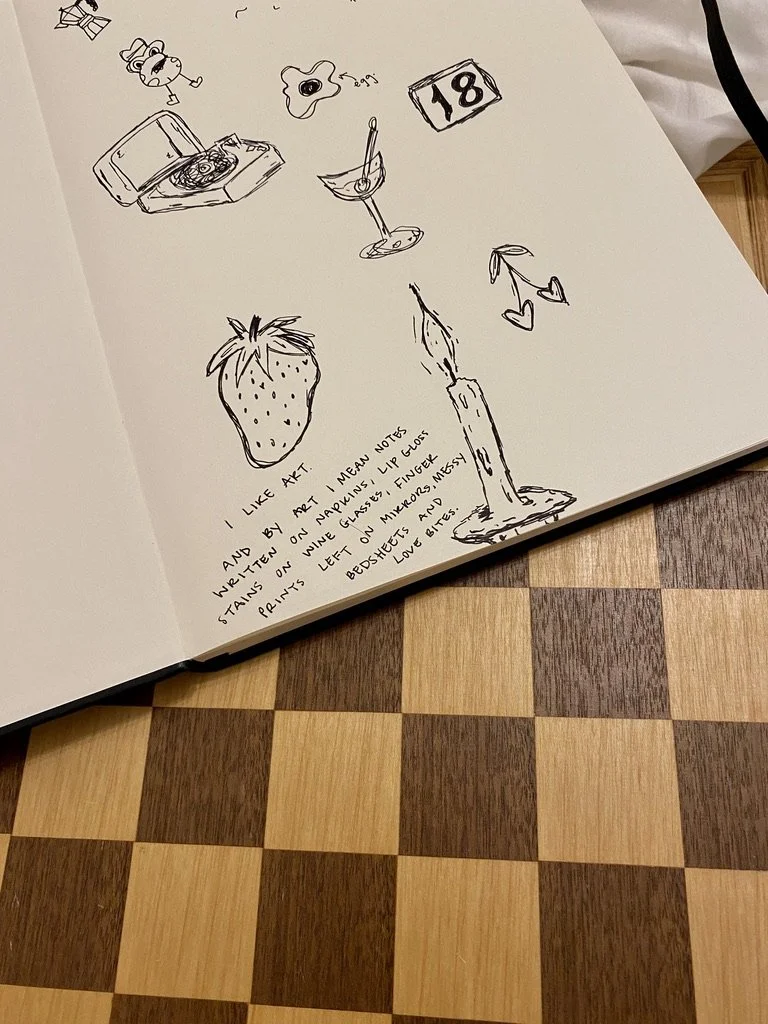 egg
18
I LIKE ART.
AND BY ART I MEAN NOTES
WRITTEN ON NAPKINS, LIP GLOSS
STAINS ON WINE GLASSES, FINGER
PRINTS LEFT ON MIRRORS, MESSY
BEDSHEETS AND
LOVE BITES.